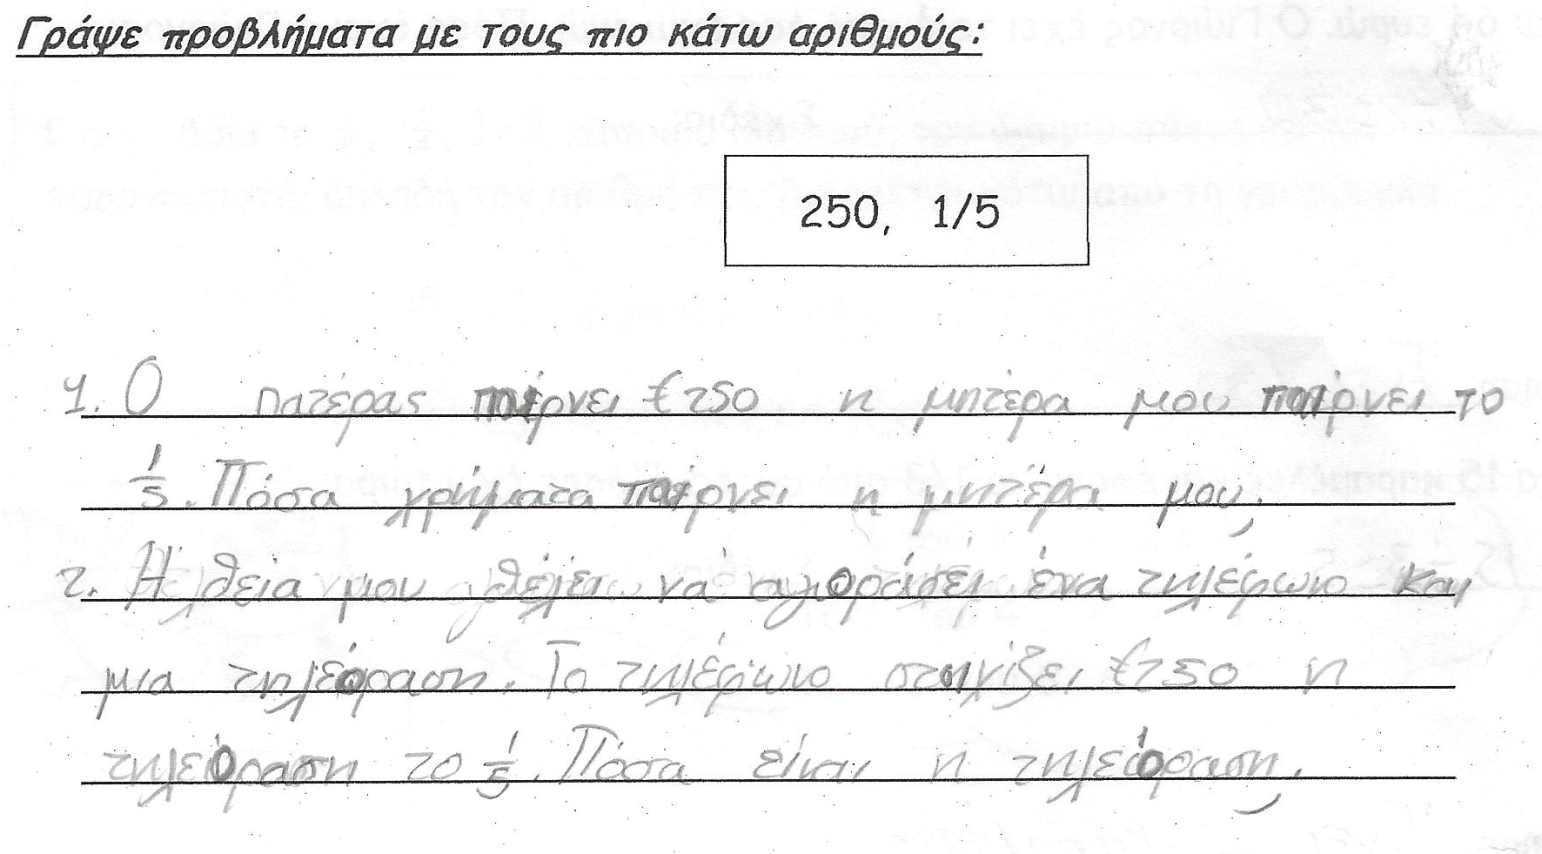 Γράψε προβλήματα με τους πιο κάτω αριθμούς:
250, 1/5
1. Ο πατέρας παίρνει €250 η μητέρα μου παίρνει το
1/5. Πόσα χρήματα παίρνει η μητέρα μου;
2. Η θεία μου θέλει να αγοράσει ένα τηλέφωνο και
μια τηλεόραση. Το τηλέφωνο στοιχίζει €250 η
τηλεόραση το 1/5. Πόσα είναι η τηλεόραση;